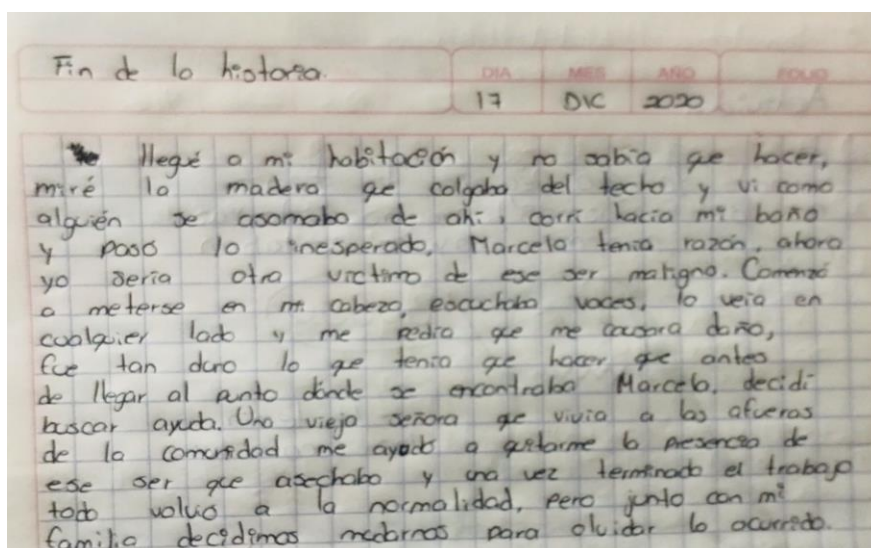 Fin de la historia.
DIA MES AÑO FOLIO
17 DIC 2020
llegué a mi habitación y no sabia que hacer,
miré la madera que colgaba del techo y vi como
alguién se asomaba de ahí, corrí hacia mi baño
y paso lo inesperado, Marcela tenia razón, ahora
yo seria otra victima de ese ser maligno. Comenzó
a meterse en mi cabeza, escuchaba voces, lo veia en
cualquier lado y me pedia que me causara daño,
fue tan duro lo que tenia que hacer que antes
de llegar al punto dónde se encontraba Marcela, decidí
buscar ayuda. Una vieja señora que vivia a las afueras
de la comunidad me ayudo a quitarme la presencia de
ese ser que asechaba y una vez terminado el trabajo
todo volvio a la normalidad, pero junto con mi
familia decidimos mudarnos para olvidar lo ocurrido.